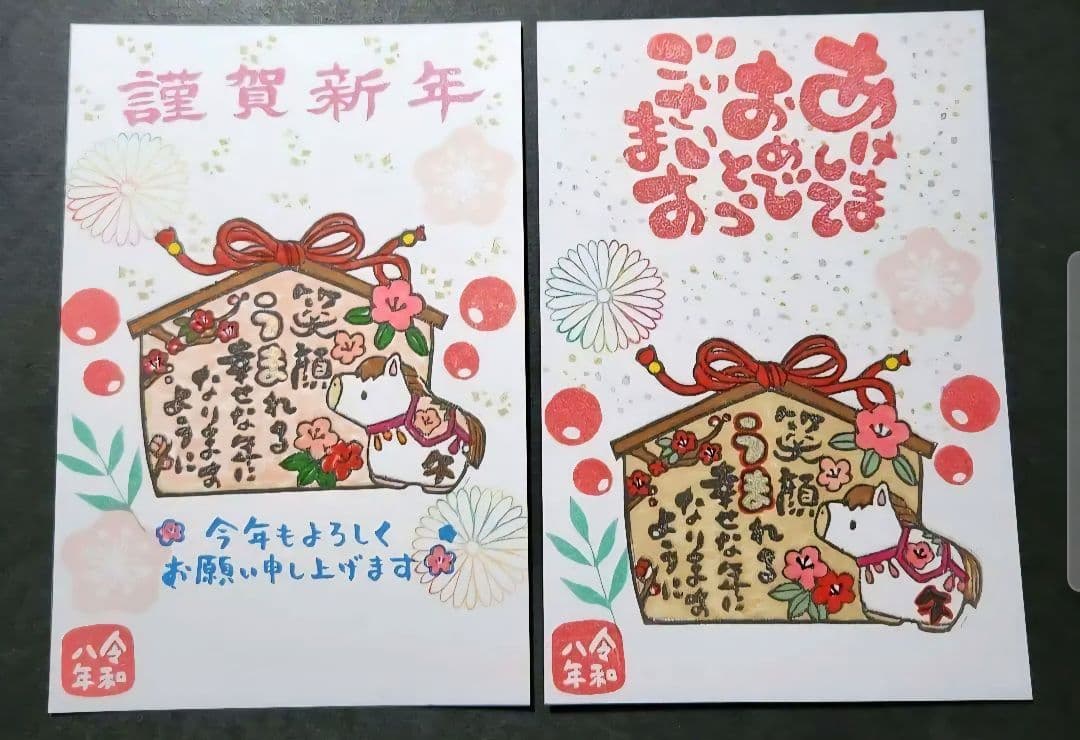 謹賀新年
笑顔
うまれる
幸せな年に
なります
ように
午
今年もよろしく
お願い申し上げます
令和
八年
あけまして
おめでとう
ございます
笑顔
うまれる
幸せな年に
なります
ように
午
令和
八年